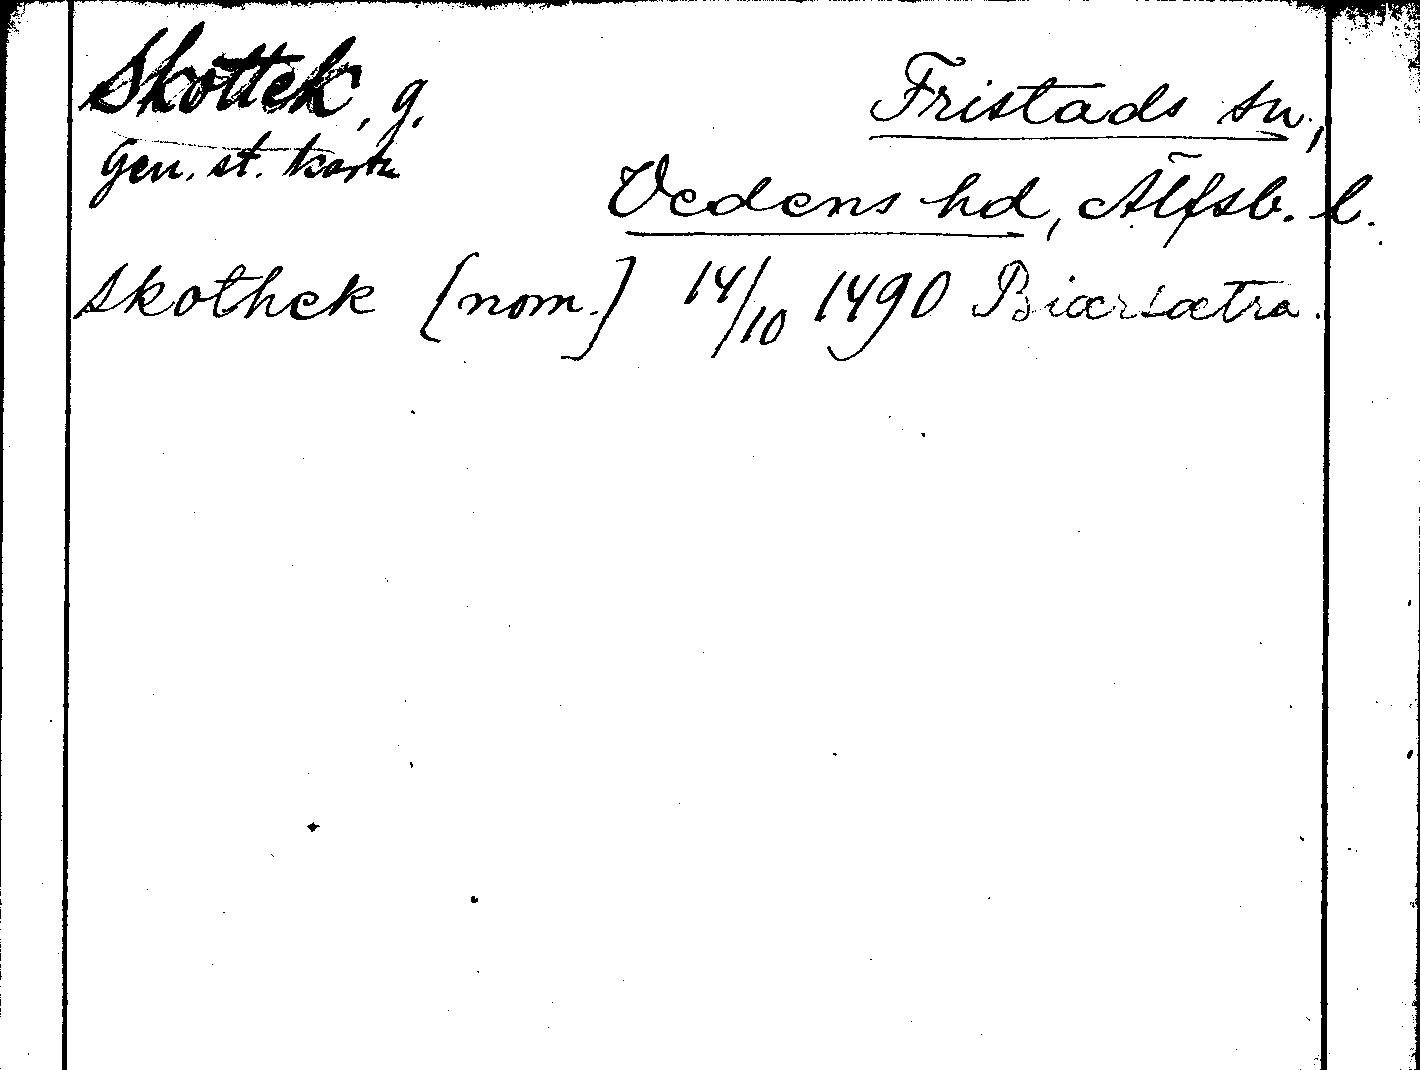 Skottek, g.
Fristads sn,
Gen. st. karta
Vedens hd, Älfsb. l.
Skothek [nom.] 14/10 1490 Biærsætra.